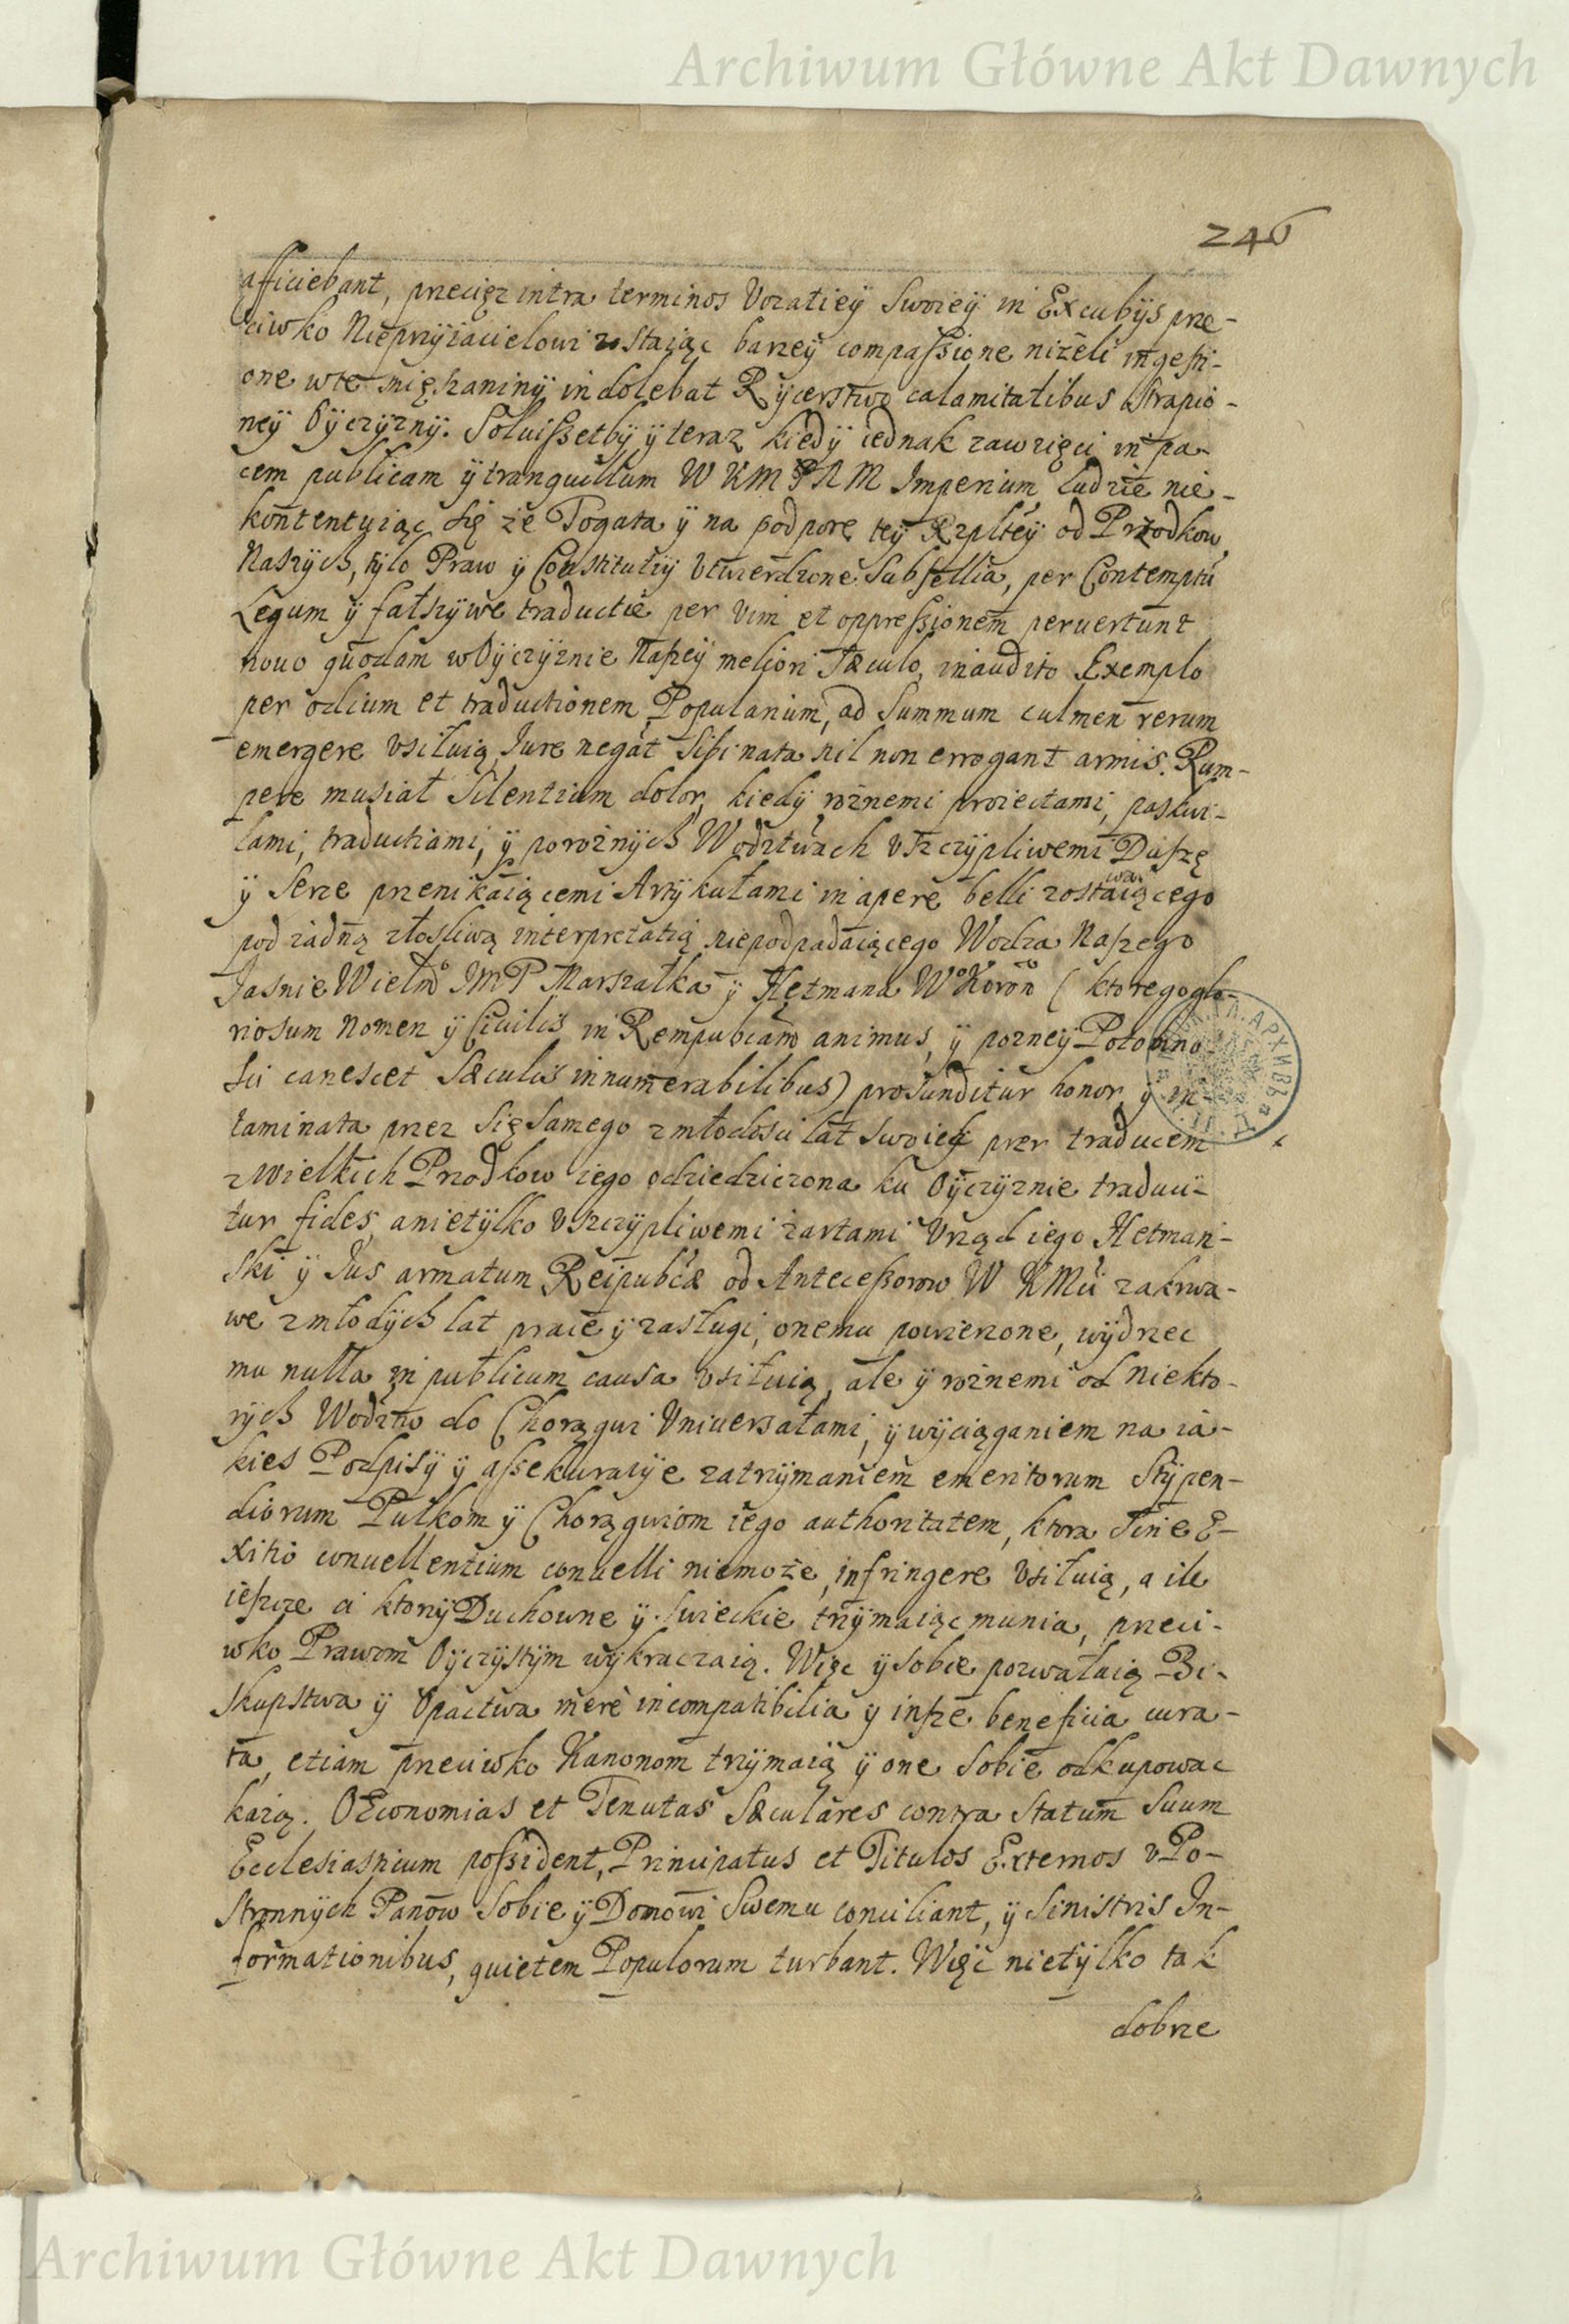 Archiwum Główne Akt Dawnych
246
afficiebant, przecięz intra terminos Vocatiey Swoiey in Excubÿs prze-
ciwko Nieprzyiacielowi zostaiąc barzey compaſsione niżeli ingeſti-
one wte mięſzaniny indolebat Rycerstwo calamitatibus Strapio-
ney Oyczyzny. Soluiſsetby y teraz kiedy iednak zawzięci in pa-
cem publicam y tranquillum W K M P N M Imperium ludzie nie-
kontentuiąc się że Togata y na podporę tey Rzpltey od Przodkow
Naszych, tylo Praw y Constitutiy Utwierdzone Subsellia, per Contemptū
Legum y fałszywe traductie per vim et oppreſsionem peruertunt
nouo quodam w Oyczyznie Naſzey meliori Sæculo, inaudito Exemplo
per odium et traductionem Popularium, ad Summum culmen rerum
emergere vsiłuią, Jure negāt Sibi nata nil non errogant armis. Rum-
pere musiał Silentium dolor, kiedy roznemi proiectami, paszkwi-
lami, traductiami, y poroznych Wodztwach Vszczypliwemi Duſzę
y Serce przenikaiącemi Artykułami in apere belli zostawaiącego
pod żadną złosliwą interpretatią niepodpadaiącego Wodza Naſzego
Jasnie Wielmo JMP Marszałka y Hetmana Wo Koron (ktorego glo-
riosum Nomen y Ciuilis in Rempubcam animus, y pozney Potomno
sci canescet Sæculis innumerabilibus) profunditur honor, y in-
taminata przez Się Samego z młodosci lat Swoich przez traducem
z Wielkich Przodkow iego odziedziczona ku Oyczyznie traduci-
tur fides, anietylko Vszczypliwemi żartami Vrząd iego Hetman-
ski y Jus armatum Reipubcæ od Anteceſsorow W KMci zakrwa-
we z młodych lat prace y zasługi, onemu powierzone, wydrzec
mu nulla in publicum causa vsiłuią, ale y roznemi od niekto-
rych Wodztw do Chorągwi Vniuersałami, y wyciąganiem na ia-
kies Podpisy y aſsekuracye zatrzymaniem emeritorum Stypen-
diorum Pułkom y Chorągwiom iego authoritatem, ktora Sine E-
xitio conuellentium conuelli niemoże, infringere Vsiłuią, a ile
ieſzcze ci ktorzy Duchowne y Swieckie trzymaiąc munia, przeci-
wko Prawom Oyczystym wykraczaią. Więc y sobie pozwalaią Bi-
skupstwa y Opactwa merè incompatibilia y inſze beneficia cura-
ta, etiam przeciwko Kanonom trzymaią y one Sobie odkupowac
każą. OEconomias et Tenutas Sæculares contra Statum Suum
Ecclesiasticum poſsident, Principatus et Titulos Externos v Po-
stronnych Panow Sobie y Domowi Swemu conciliant, y Sinistris In-
formationibus, quietem Populorum turbant. Więc nietylko tak
dobrze
Archiwum Główne Akt Dawnych